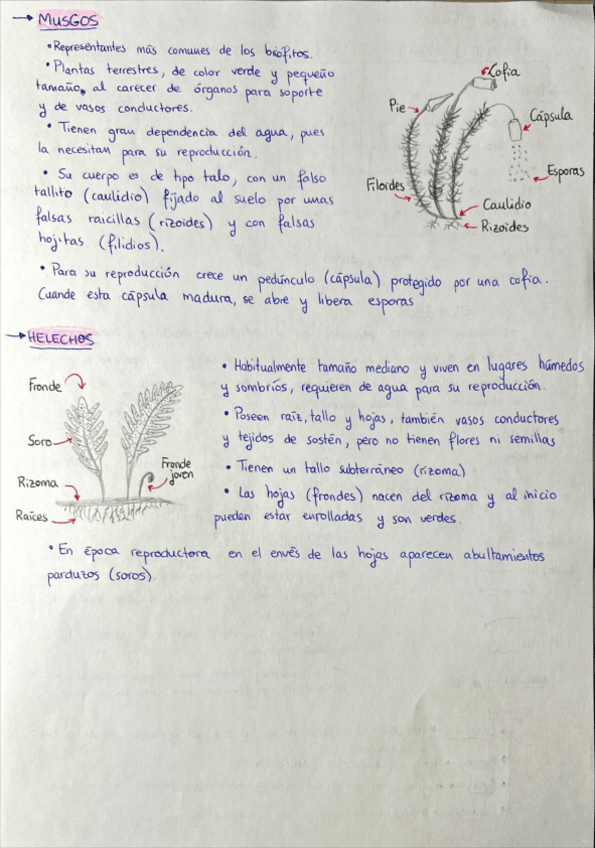 → MUSGOS
• Representantes más comunes de los biofitos.
• Plantas terrestres, de color verde y pequeño
tamaño, al carecer de órganos para soporte
y de vasos conductores.
• Tienen gran dependencia del agua, pues
la necesitan para su reproducción.
• Su cuerpo es de tipo talo, con un falso
tallito (caulidio) fijado al suelo por unas
falsas raicillas (rizoides) y con falsas
hojitas (filidios).
Cofia
Pie
Cápsula
Esporas
Filoides
Caulidio
Rizoides
• Para su reproducción crece un pedúnculo (cápsula) protegido por una cofia.
Cuande esta cápsula madura, se abre y libera esporas
→ HELECHOS
Fronde
Soro
Fronde
joven
Rizoma
Raíces
• Habitualmente tamaño mediano y viven en lugares húmedos
y sombríos, requieren de agua para su reproducción.
• Poseen raíz, tallo y hojas, también vasos conductores
y tejidos de sostén, pero no tienen flores ni semillas
• Tienen un tallo subterráneo (rizoma)
• Las hojas (frondes) nacen del rizoma y al inicio
pueden estar enrolladas y son verdes.
• En época reproductora en el envés de las hojas aparecen abultamientos
parduzos (soros).